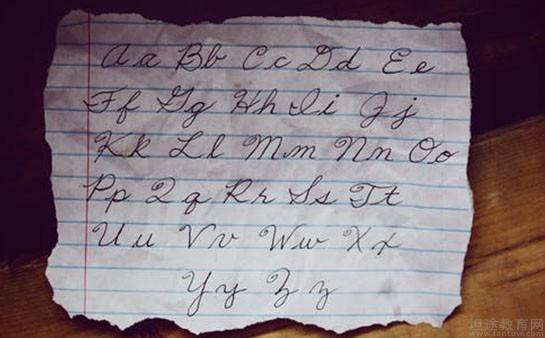 Aa Bb Cc Dd Ee
Ff Gg Hh Ii Jj
Kk Ll Mm Nn Oo
Pp Qq Rr Ss Tt
Uu Vv Ww Xx
Yy Zz
坦途教育网
www.tantuw.com